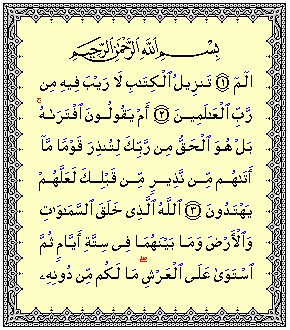 بِسْمِ ٱللَّهِ ٱلرَّحْمَٰنِ ٱلرَّحِيمِ
الٓمٓ ۝١ تَنزِيلُ ٱلْكِتَٰبِ لَا رَيْبَ فِيهِ مِن
رَّبِّ ٱلْعَٰلَمِينَ ۝٢ أَمْ يَقُولُونَ ٱفْتَرَىٰهُ ۚ
بَلْ هُوَ ٱلْحَقُّ مِن رَّبِّكَ لِتُنذِرَ قَوْمًا مَّآ
أَتَىٰهُم مِّن نَّذِيرٍ مِّن قَبْلِكَ لَعَلَّهُمْ
يَهْتَدُونَ ۝٣ ٱللَّهُ ٱلَّذِى خَلَقَ ٱلسَّمَٰوَٰتِ
وَٱلْأَرْضَ وَمَا بَيْنَهُمَا فِى سِتَّةِ أَيَّامٍ ثُمَّ
ٱسْتَوَىٰ عَلَى ٱلْعَرْشِ ۖ مَا لَكُم مِّن دُونِهِۦ